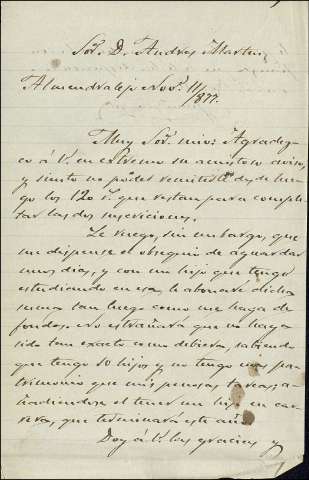 Sor. D. Andres Martin
Almendralejo Novre. 11/877.
Muy Sor. mio: Agradez-
co á V. en extremo su amistoso aviso,
y siento no poder remitirle desde lue-
go los 120 r. que restan para comple-
tar las dos suscriciones.
Le ruego, sin embargo, que
me dispense el obsequio de aguardar
unos dias, y con un hijo que tengo
estudiando en esa le abonaré dicha
suma tan luego como me haga de
fondos. No estrañará que no haya
sido tan exacto como debiera, sabiendo
que tengo 10 hijos y no tengo mas pa-
trimonio que mis penosas tareas; a-
ñadiendose el tener un hijo en car-
rera, que terminará este año.
Doy á V. las gracias y